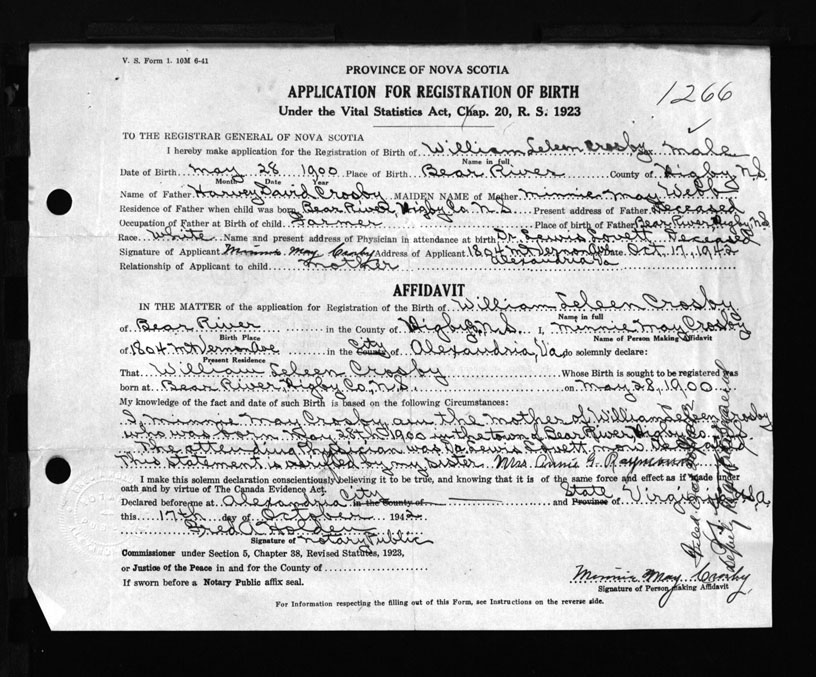 V. S. Form 1. 10M 6-41
PROVINCE OF NOVA SCOTIA
APPLICATION FOR REGISTRATION OF BIRTH
Under the Vital Statistics Act, Chap. 20, R. S. 1923
1266
TO THE REGISTRAR GENERAL OF NOVA SCOTIA
I hereby make application for the Registration of Birth of William Seleen Crosby sex male
Name in full
Date of Birth May 28 1900 Place of Birth Bear River County of Digby, N.S.
Month Date Year
Name of Father Harvey David Crosby MAIDEN NAME of Mother Minnie May Webb
Residence of Father when child was born Bear River, Digby Co. N.S. Present address of Father Deceased
Occupation of Father at Birth of child Farmer Place of birth of Father Bear River, Digby Co, N.S
Race White Name and present address of Physician in attendance at birth Dr. Lewis Lovett Deceased
Signature of Applicant Minnie May Crosby Address of Applicant 1804 Mt Vernon Ave Date Oct. 17, 1942
Alexandria Va
Relationship of Applicant to child mother
AFFIDAVIT
IN THE MATTER of the application for Registration of the Birth of William Seleen Crosby
Name in full
of Bear River in the County of Digby, N.S. I, Minnie May Crosby
Birth Place Name of Person Making Affidavit
of 1804 Mt Vernon Ave in the County of City Alexandria, Va. do solemnly declare:
Present Residence
That William Seleen Crosby Whose Birth is sought to be registered was
born at Bear River, Digby Co., N.S. on May 28, 1900
My knowledge of the fact and date of such Birth is based on the following Circumstances:
I, Minnie May Crosby am the mother of William Seleen Crosby
who was born May 28th 1900 in the town of Bear River Digby Co. N.S.
The attending Physician was Dr. Lewis Lovett now Deceased
This statement is verified by my sister Mrs. Annie G. Raymond
I make this solemn declaration conscientiously believing it to be true, and knowing that it is of the same force and effect as if made under
oath and by virtue of The Canada Evidence Act.
Declared before me at Alexandria City in the County of and Province of State Virginia, USA.
this 17th day of October 1942
Fred
Signature of Notary Public
Commissioner under Section 5, Chapter 38, Revised Statutes, 1923,
or Justice of the Peace in and for the County of
If sworn before a Notary Public affix seal.
Minnie May Crosby
Signature of Person making Affidavit
For Information respecting the filling out of this Form, see Instructions on the reverse side.